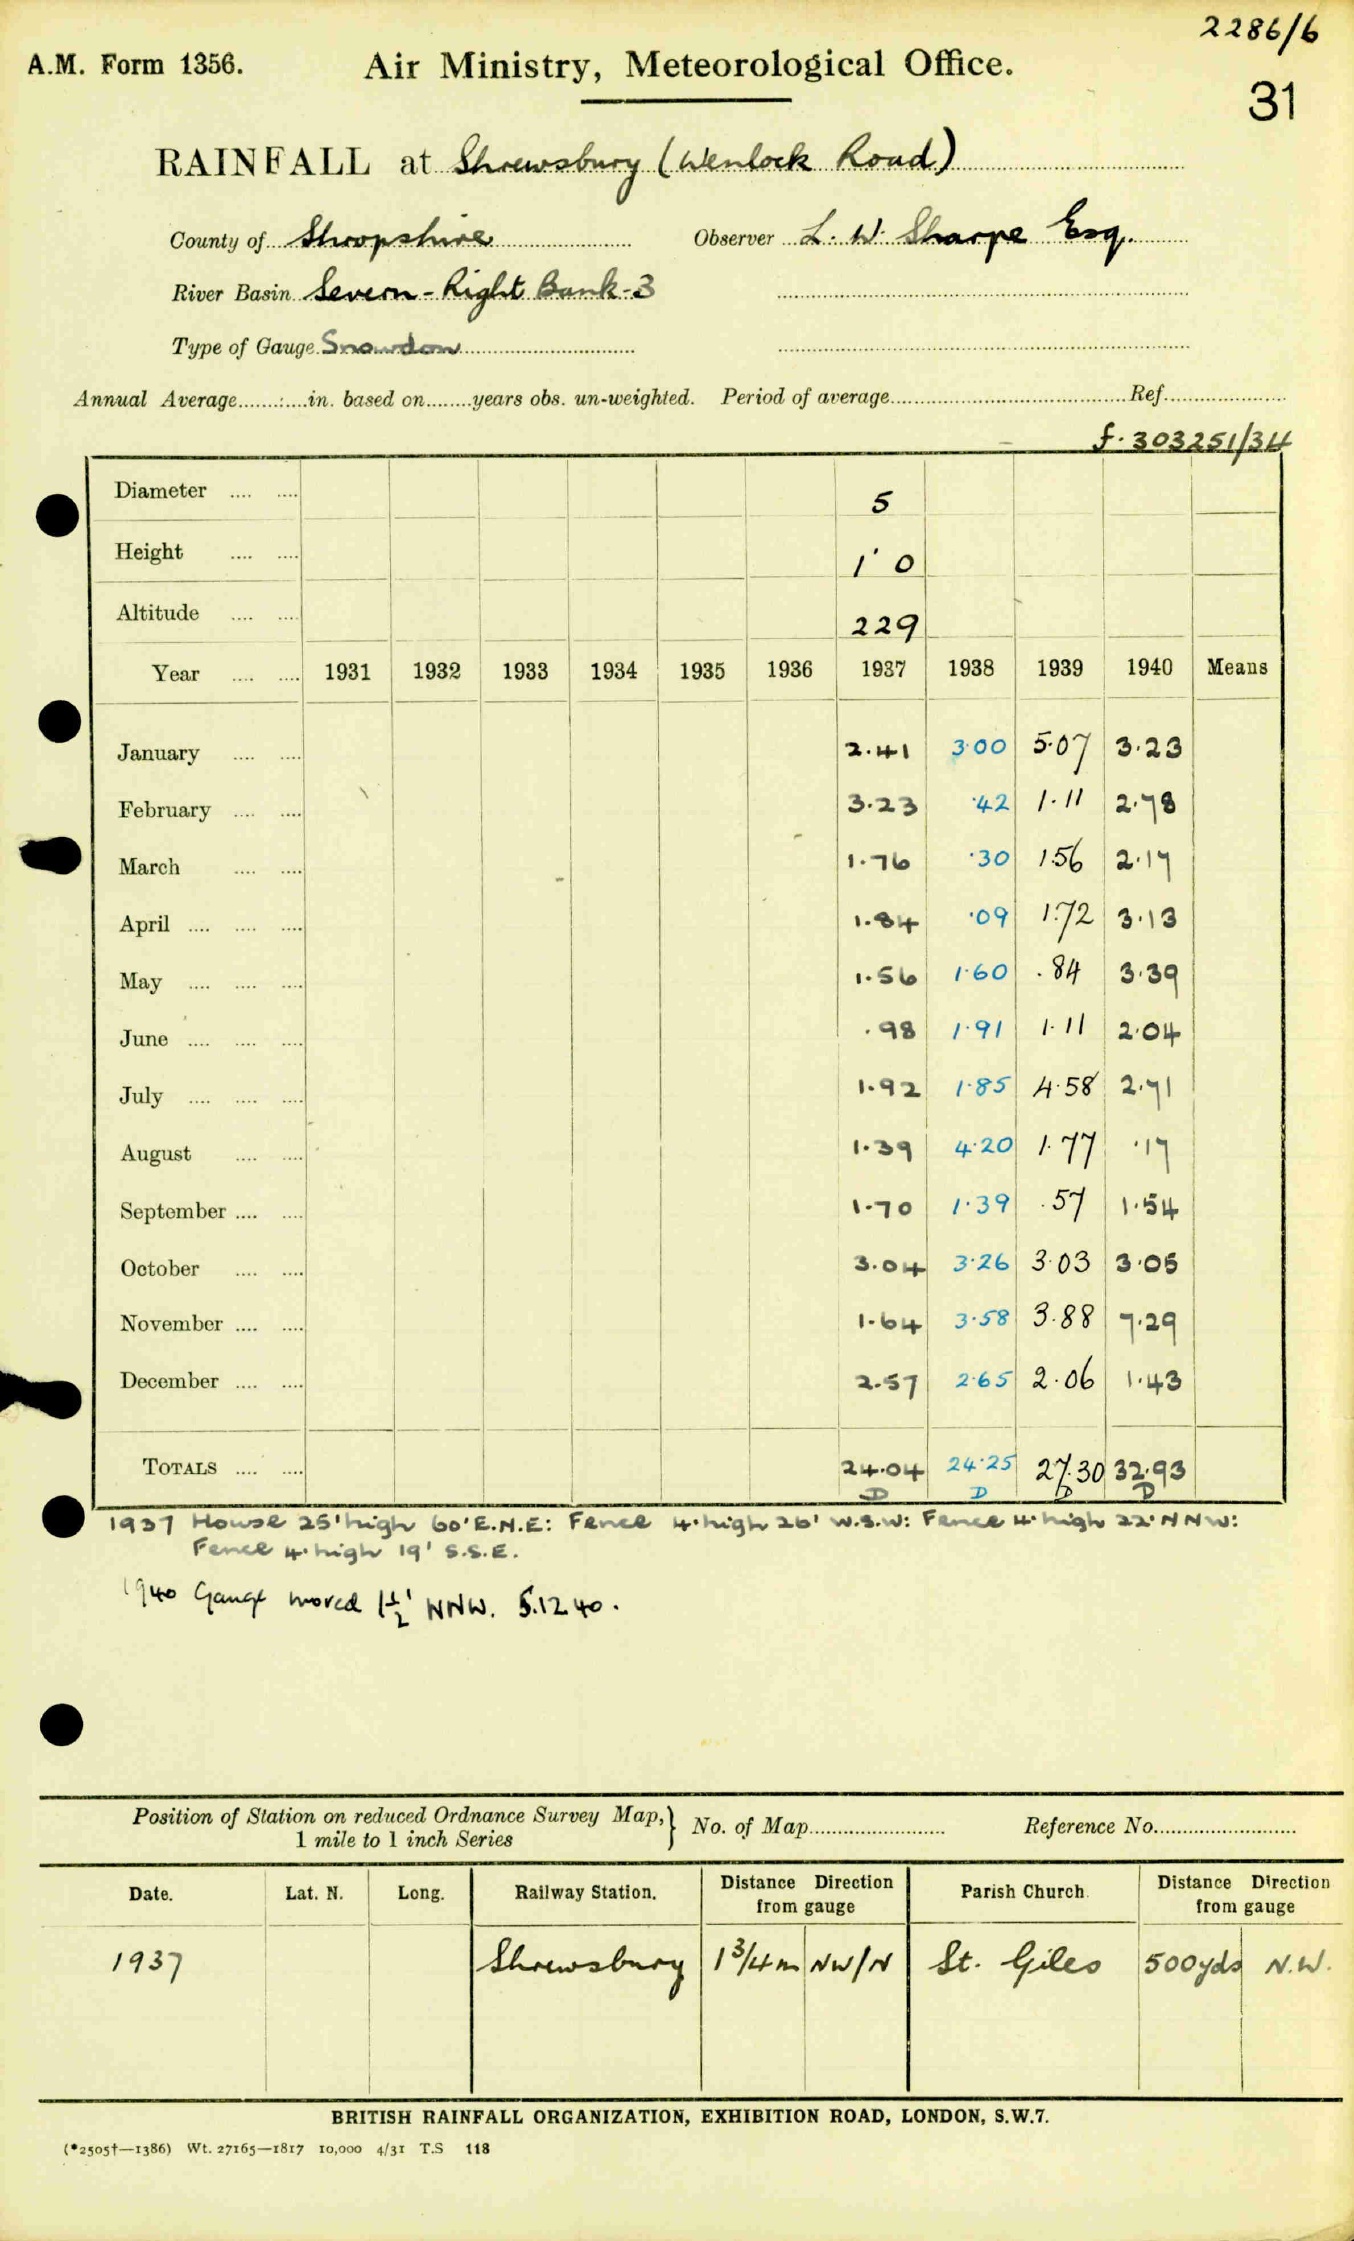 2286/6
A.M. Form 1356. Air Ministry, Meteorological Office.
31
RAINFALL at Shrewsbury (Wenlock Road)
County of Shropshire Observer L. W. Sharpe Esq.
River Basin Severn - Right Bank - 3
Type of Gauge Snowdon
Annual Average.......:....in. based on........years obs. un-weighted. Period of average........ Ref........
f. 303251/34
Diameter .... .... 5
Height .... .... 1' 0
Altitude .... .... 229
Year .... .... 1931 1932 1933 1934 1935 1936 1937 1938 1939 1940 Means
January .... .... 2.41 3.00 5.07 3.23
February .... .... 3.23 .42 1.11 2.78
March .... .... 1.76 .30 1.56 2.17
April .... .... .... 1.84 .09 1.72 3.13
May .... .... .... 1.56 1.60 .84 3.39
June .... .... .... .98 1.91 1.11 2.04
July .... .... .... 1.92 1.85 4.58 2.71
August .... .... 1.39 4.20 1.77 .17
September .... .... 1.70 1.39 .57 1.54
October .... .... 3.04 3.26 3.03 3.05
November .... .... 1.64 3.58 3.88 7.29
December .... .... 2.57 2.65 2.06 1.43
TOTALS .... .... 24.04 24.25 27.30 32.93
D D D D
1937 House 25' high 60' E.N.E: Fence 4' high 26' W.S.W: Fence 4' high 22' NNW:
Fence 4' high 19' S.S.E.
1940 Gauge moved 1½' NNW. 5.12.40.
Position of Station on reduced Ordnance Survey Map, } No. of Map........ Reference No........
1 mile to 1 inch Series
Date. Lat. N. Long. Railway Station. Distance Direction from gauge Parish Church. Distance Direction from gauge
1937 Shrewsbury 1 3/4 m NW/N St. Giles 500yds N.W.
BRITISH RAINFALL ORGANIZATION, EXHIBITION ROAD, LONDON, S.W.7.
(*2505†—1386) Wt. 27165—1817 10,000 4/31 T.S 118